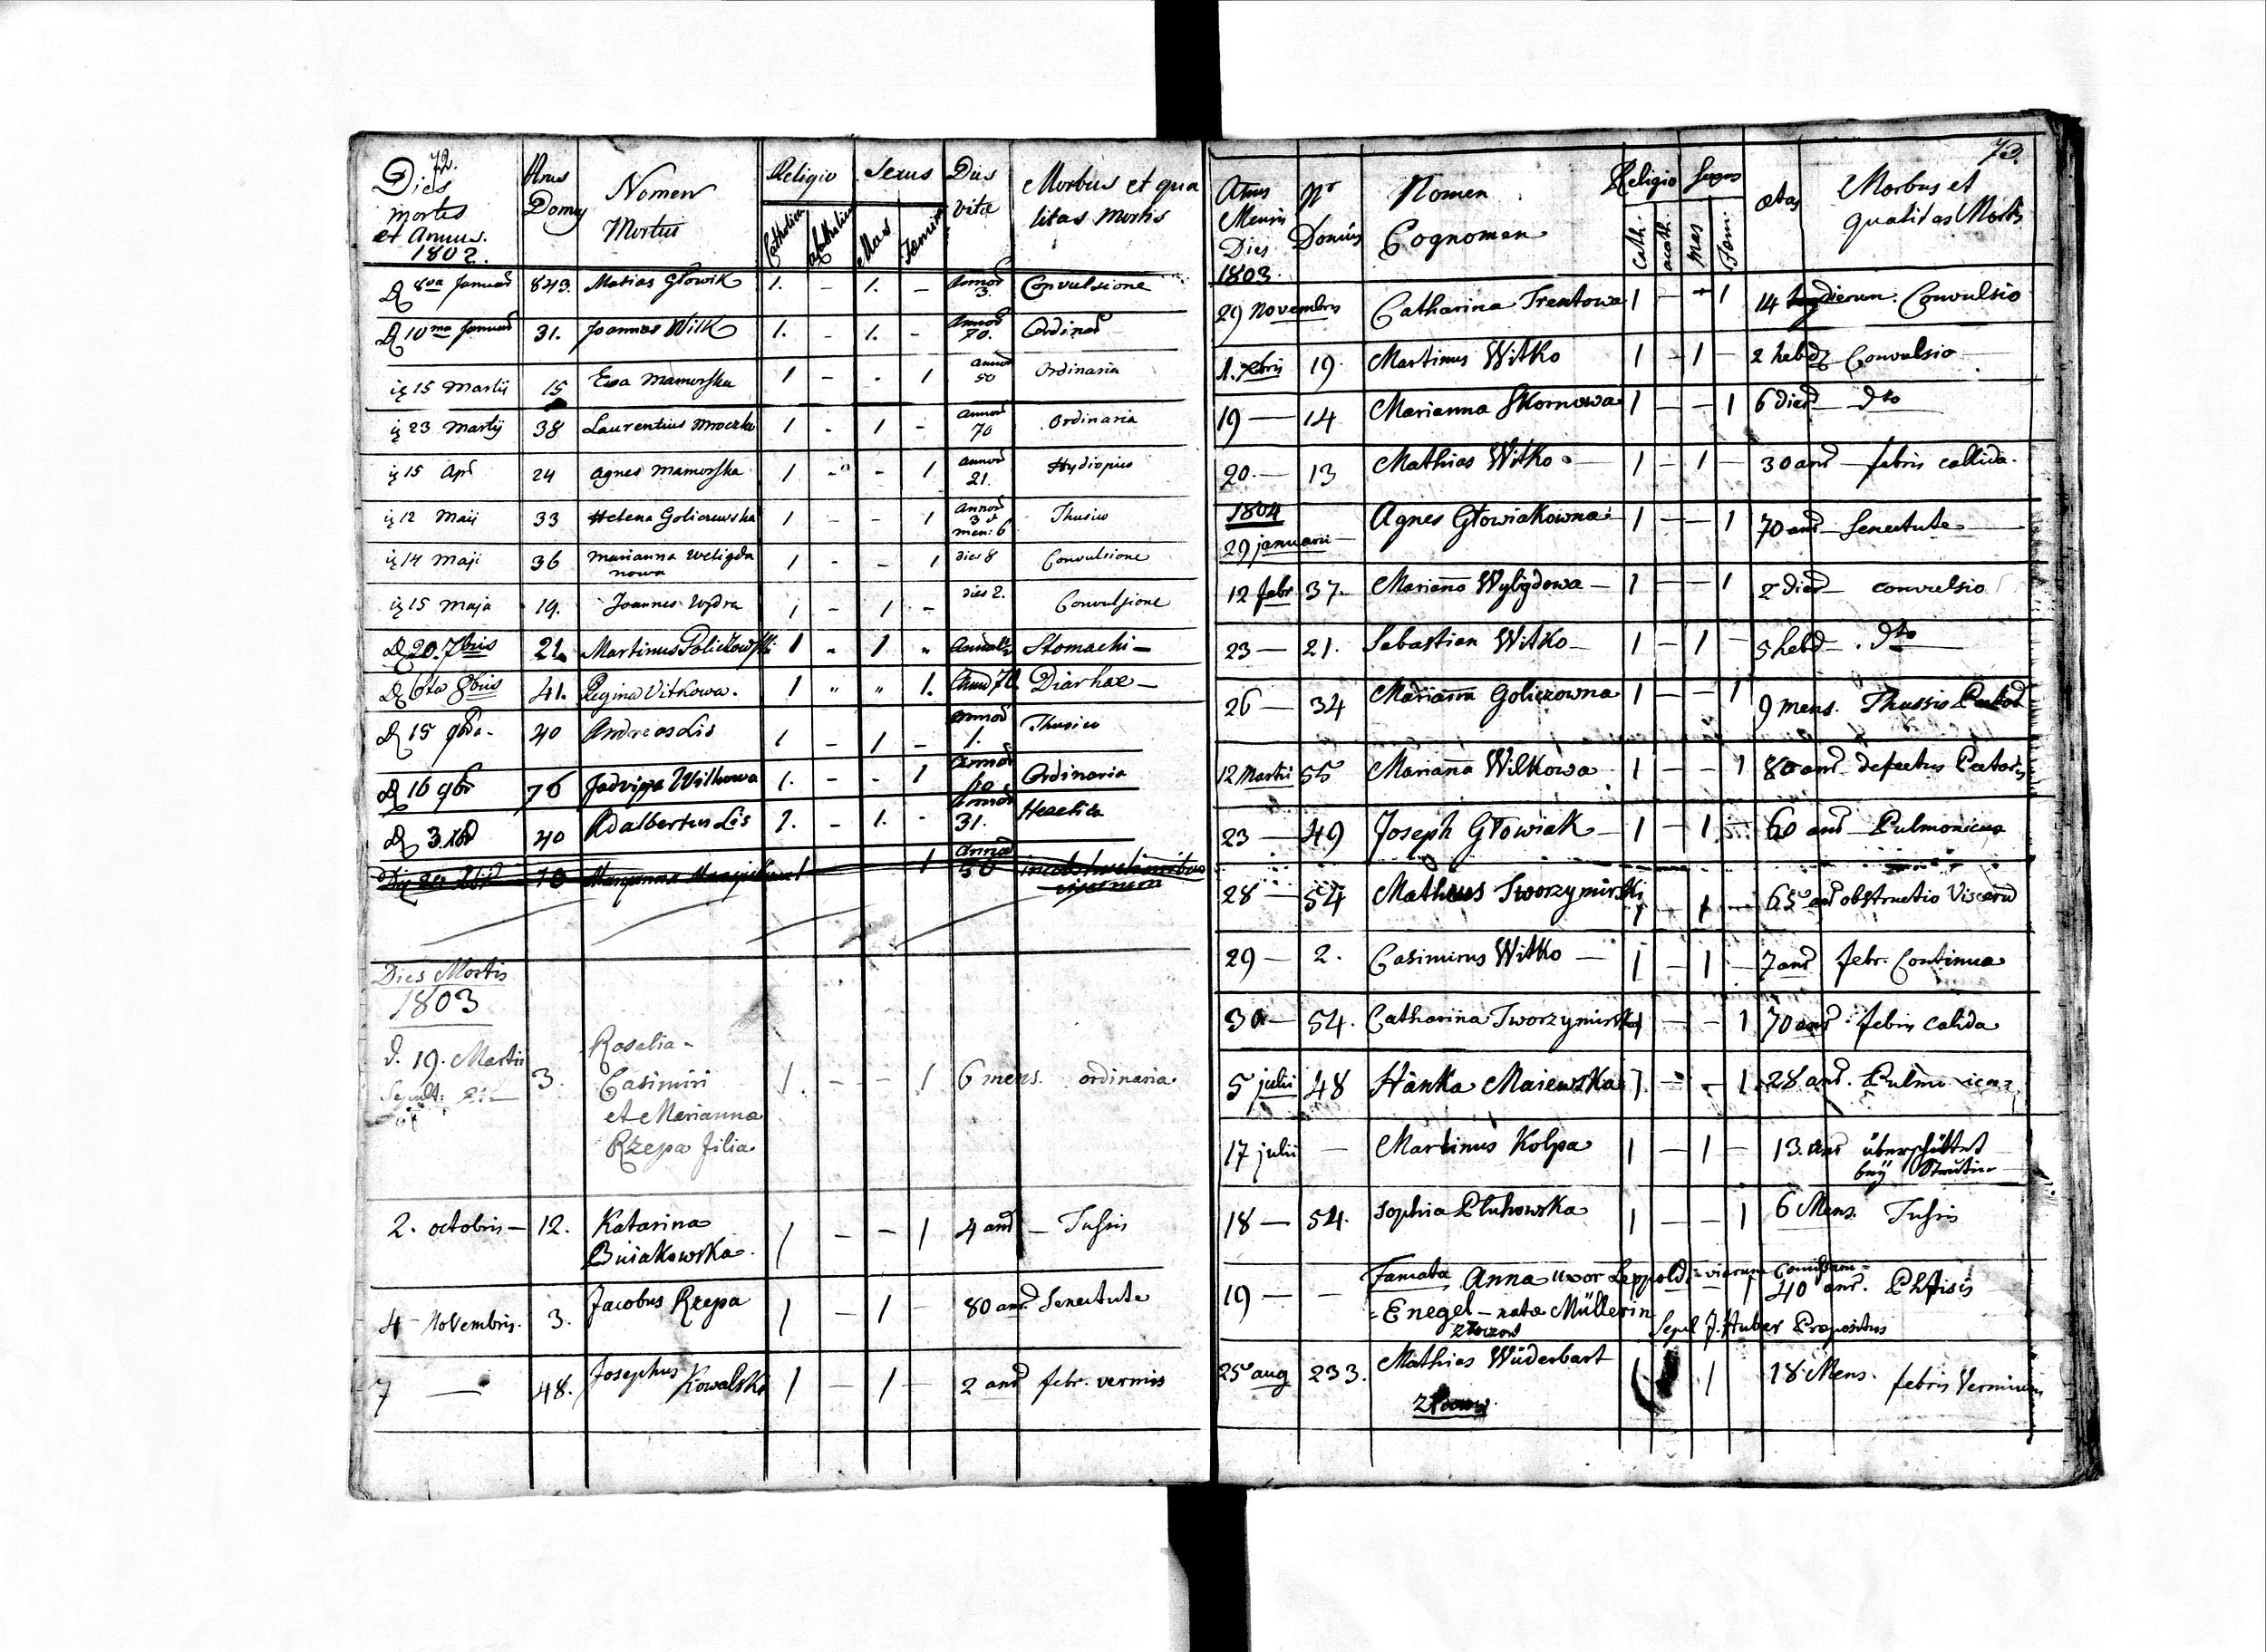 72.
Dies mortis et Annus. 1802.
Nrus Domus
Nomen Mortui
Religio
Catholica
Sexus
Mas
Femina
Dies vitæ
Morbus et qua litas mortis
D 8va Januarii 843. Matias Głowik 1. - 1. - Annor 3. Convulsione
D 10ma Januarii 31. Joannes Wilk 1. - 1. - Annor 70. Ordinar
15 Martii 15 Ewa Mamorska 1 - . 1 annor 50 Ordinaria
23 Martij 38 Laurentius Mroczka 1 - 1 - Annor 70 Ordinaria
15 Apr 24 Agnes Mamorska 1 - - 1 Annor 21. Hydropico
12 Maij 33 Helena Goliczewska 1 - - 1 Annor 3 et men: 6 Thusico
14 Maji 36 Marianna Weligda nowa 1 - - 1 dies 8 Convulsione
15 Maja 19. Joannes Wydra 1 - 1 - dies 2. Convulsione
D 20. 7bris 21. Martinus Policzowski 1 - 1 " Stomachi -
D 6ta 8bris 41. Regina Vitkowa. 1 " " 1. Annor 70 Diarhae -
D 15 40 Andreas Lis 1 - 1 - Annor 1. Thusico
D 16 9br 76 Jadviga Wilkowa 1. - - 1 Annor Ordinaria
D 3. Xbr 40 Adalbertus Lis 1. - 1. - Annor 31. Hectica
10 1 1 Annor 50
Dies Mortis
1803
d. 19. Martii 3. Rosalia - 1. - - 1 6 mens. ordinaria
Sepult:
Casimiri
et Marianna
Rzepa filia
2. octobris - 12. Katarina Busiakowska. 1 - - 1 4 anr - Tussis
4 Novembris. 3. Jacobus Rzepa 1 - 1 - 80 anr. Senectute
7 — 48. Josephus Kowalski 1 - 1 - 2 anr febr. vermis
73.
Anus Mensis Dies 1803.
Nr Domus
Nomen Cognomen
Religio
Cath.
acath.
Sexus
Mas
Fem.
ætas
Morbus et qualitas Mortis
29 Novembris Catharina Trentowa 1 - 1 14 dierum. Convulsio
1. Xbris 19. Martinus Witko 1 - 1 - 2 hebd Convulsio
19 — 14 Marianna Skornowa 1 - - 1 6 dier dto
20. — 13 Mathias Witko 1 - 1 - 30 anr - febris callida.
1804
29 januarii - Agnes Głowiakowna 1 - - 1 70 anr - Senectute
12 febr 37. Mariana Wyligdowa - 1 - - 1 2 dier - convulsio
23 — 21. Sebastian Witko - 1 - 1 - 5 hebd - dto
26 — 34 Marianna Goliczowna 1 - - 1 9 mens. Thussis
12 Martii 55 Mariana Wilkowa 1 - - 1 80 anr - defectus Pectoris
23 — 49 Joseph Głowiak - 1 - 1 60 anr - Pulmonicus
28 — 54 Matheus Tworzymirski 1 - 1 - 65 anr obstructio Viscerū
29 — 2. Casimirus Witko - 1 - 1 - 7 anr febr. Continua
30 — 54. Catharina Tworzymirska 1 - - 1 70 anr febris calida
5 julii 48 Hanka Maiewska 1 - - 1 28 anr.
17 julii - Martinus Kolpa 1 - 1 - 13. anr überschüttet
18 — 54. Sophia Pluhowska 1 - - 1 6 Mens. Tussis
19 — - Famata Anna uxor Leppoldi - viarum
= Enegel - nata Müllerin 1 40 anr. Phtisis
Złoczow
Sepel J. Huber Præpositus
25 aug 233. Mathias Wüderbart 1 1 18 Mens. febris
Złoczow.